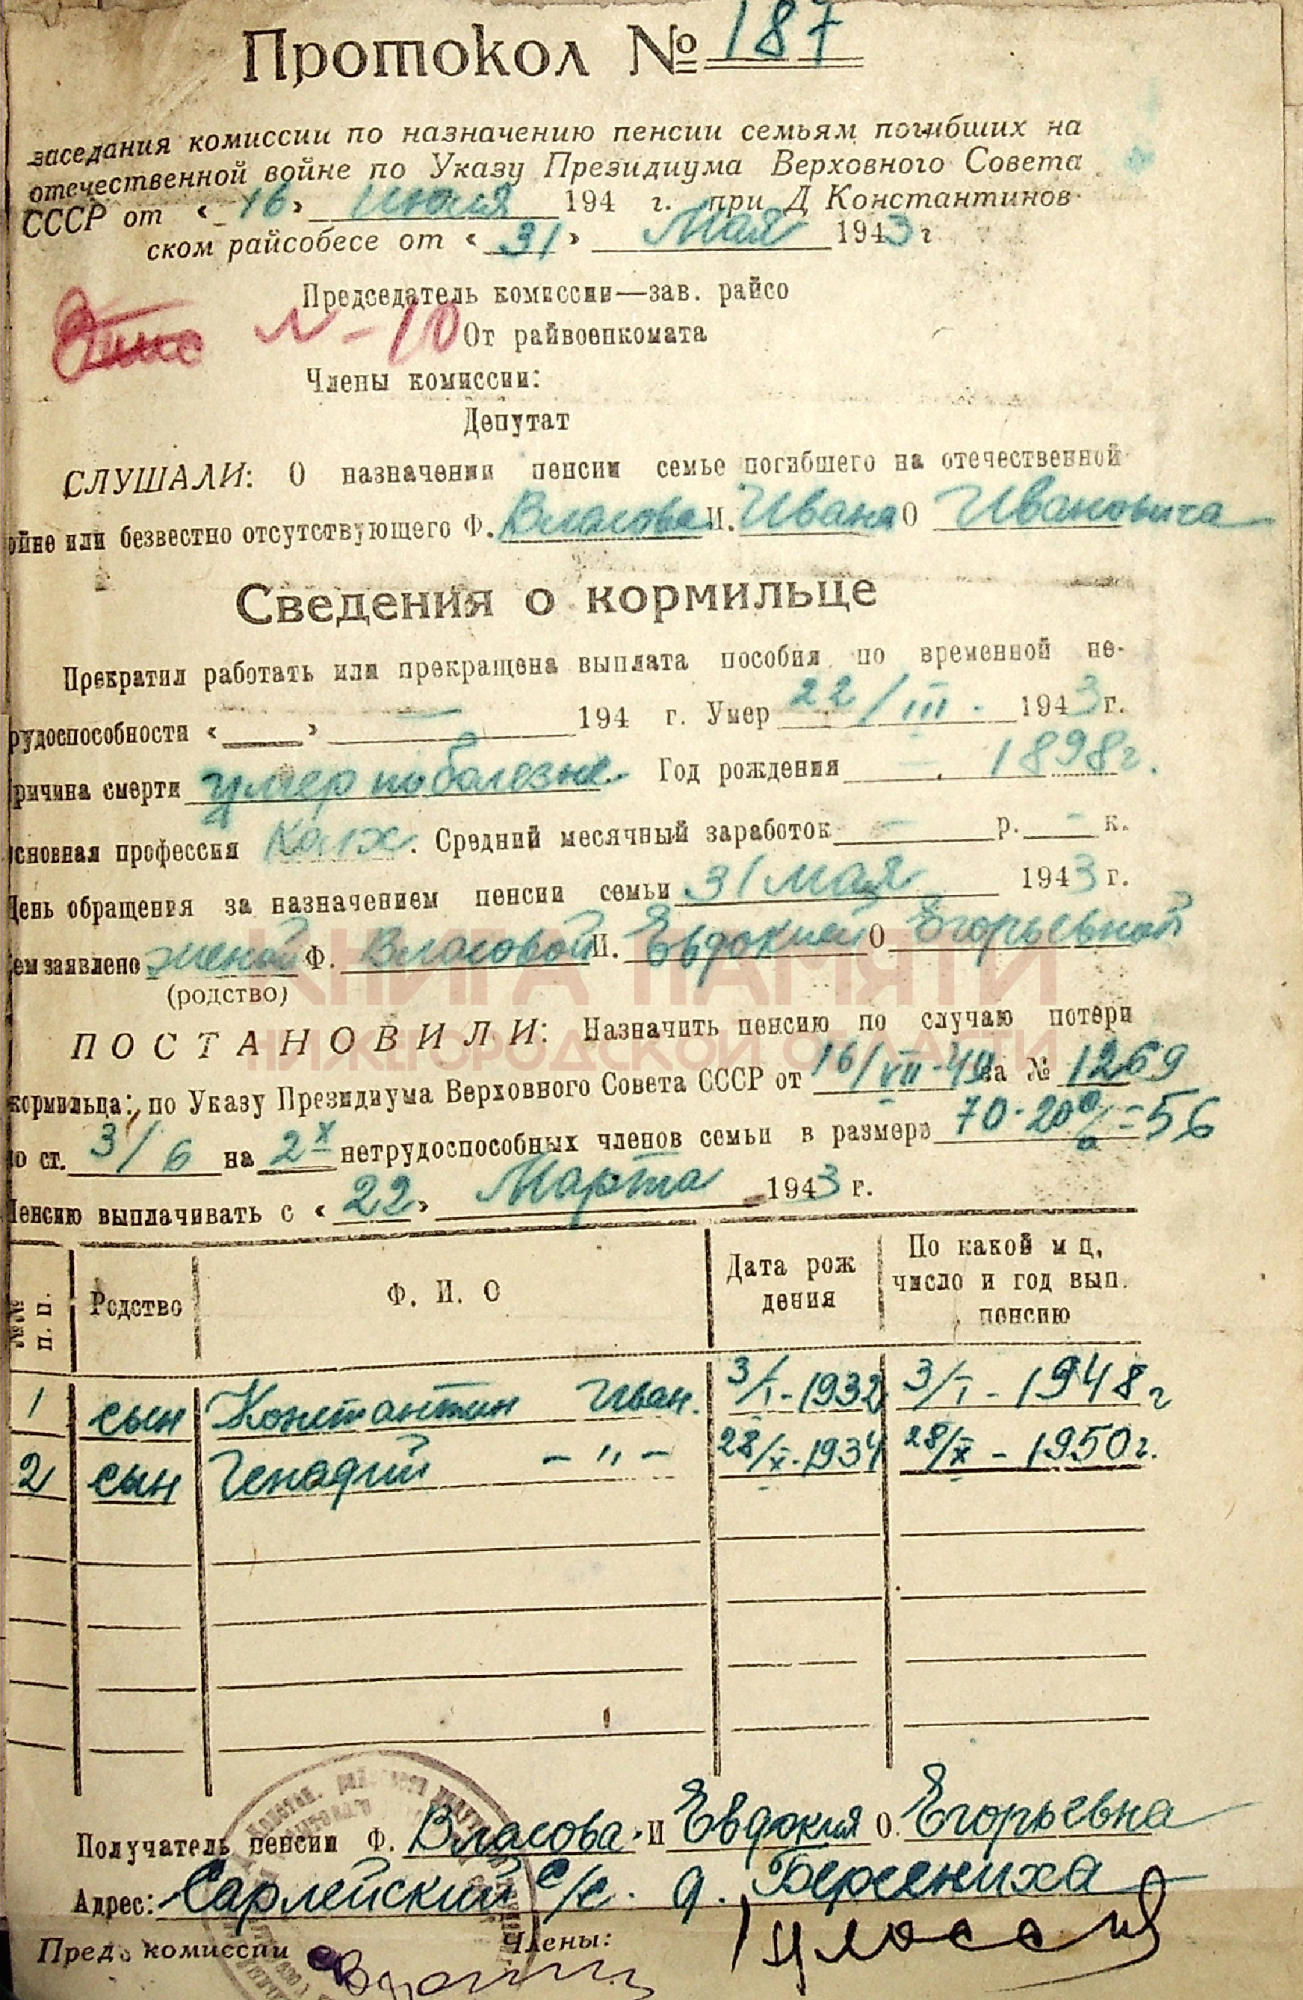 Протокол № 187
заседания комиссии по назначению пенсии семьям погибших на
отечественной войне по Указу Президиума Верховного Совета
СССР от «16» июля 194 г. при Д Константинов-
ском райсобесе от «31» Мая 1943 г
Председатель комиссии—зав. райсо
N-10 От райвоенкомата
Члены комиссии:
Депутат
СЛУШАЛИ: О назначении пенсии семье погибшего на отечественной
ойне или безвестно отсутствующего Ф. Власова И. Ивана О Ивановича
Сведения о кормильце
Прекратил работать или прекращена выплата пособия по временной не-
рудоспособности «—» — 194 г. Умер 22/III. 1943 г.
ричина смерти умер по болезне. Год рождения — 1898 г.
сновная профессия Колх. Средний месячный заработок — р. — к.
День обращения за назначением пенсии семьи 31 мая 1943 г.
ем заявлено женой Ф. Власовой И. Евдокией О Егорьевной
(родство)
КНИГА ПАМЯТИ
НИЖЕГОРОДСКОЙ ОБЛАСТИ
ПОСТАНОВИЛИ: Назначить пенсию по случаю потери
кормильца: по Указу Президиума Верховного Совета СССР от 16/VII-49 за № 1269
о ст. 3/6 на 2х нетрудоспособных членов семьи в размере 70-20%=56
Пенсию выплачивать с «22» Марта 1943 г.
№№ п. п. Родство Ф. И. О Дата рож дения По какой м ц, число и год вып. пенсию
1 сын Константин Иван. 3/I-1932 3/I-1948 г
2 сын Генадий -"- 28/X-1934 28/X-1950 г.
Получатель пенсии Ф. Власова И Евдокия О. Егорьевна
Адрес: Сарлейский с/с. д. Берсениха
Пред. комиссии Члены: